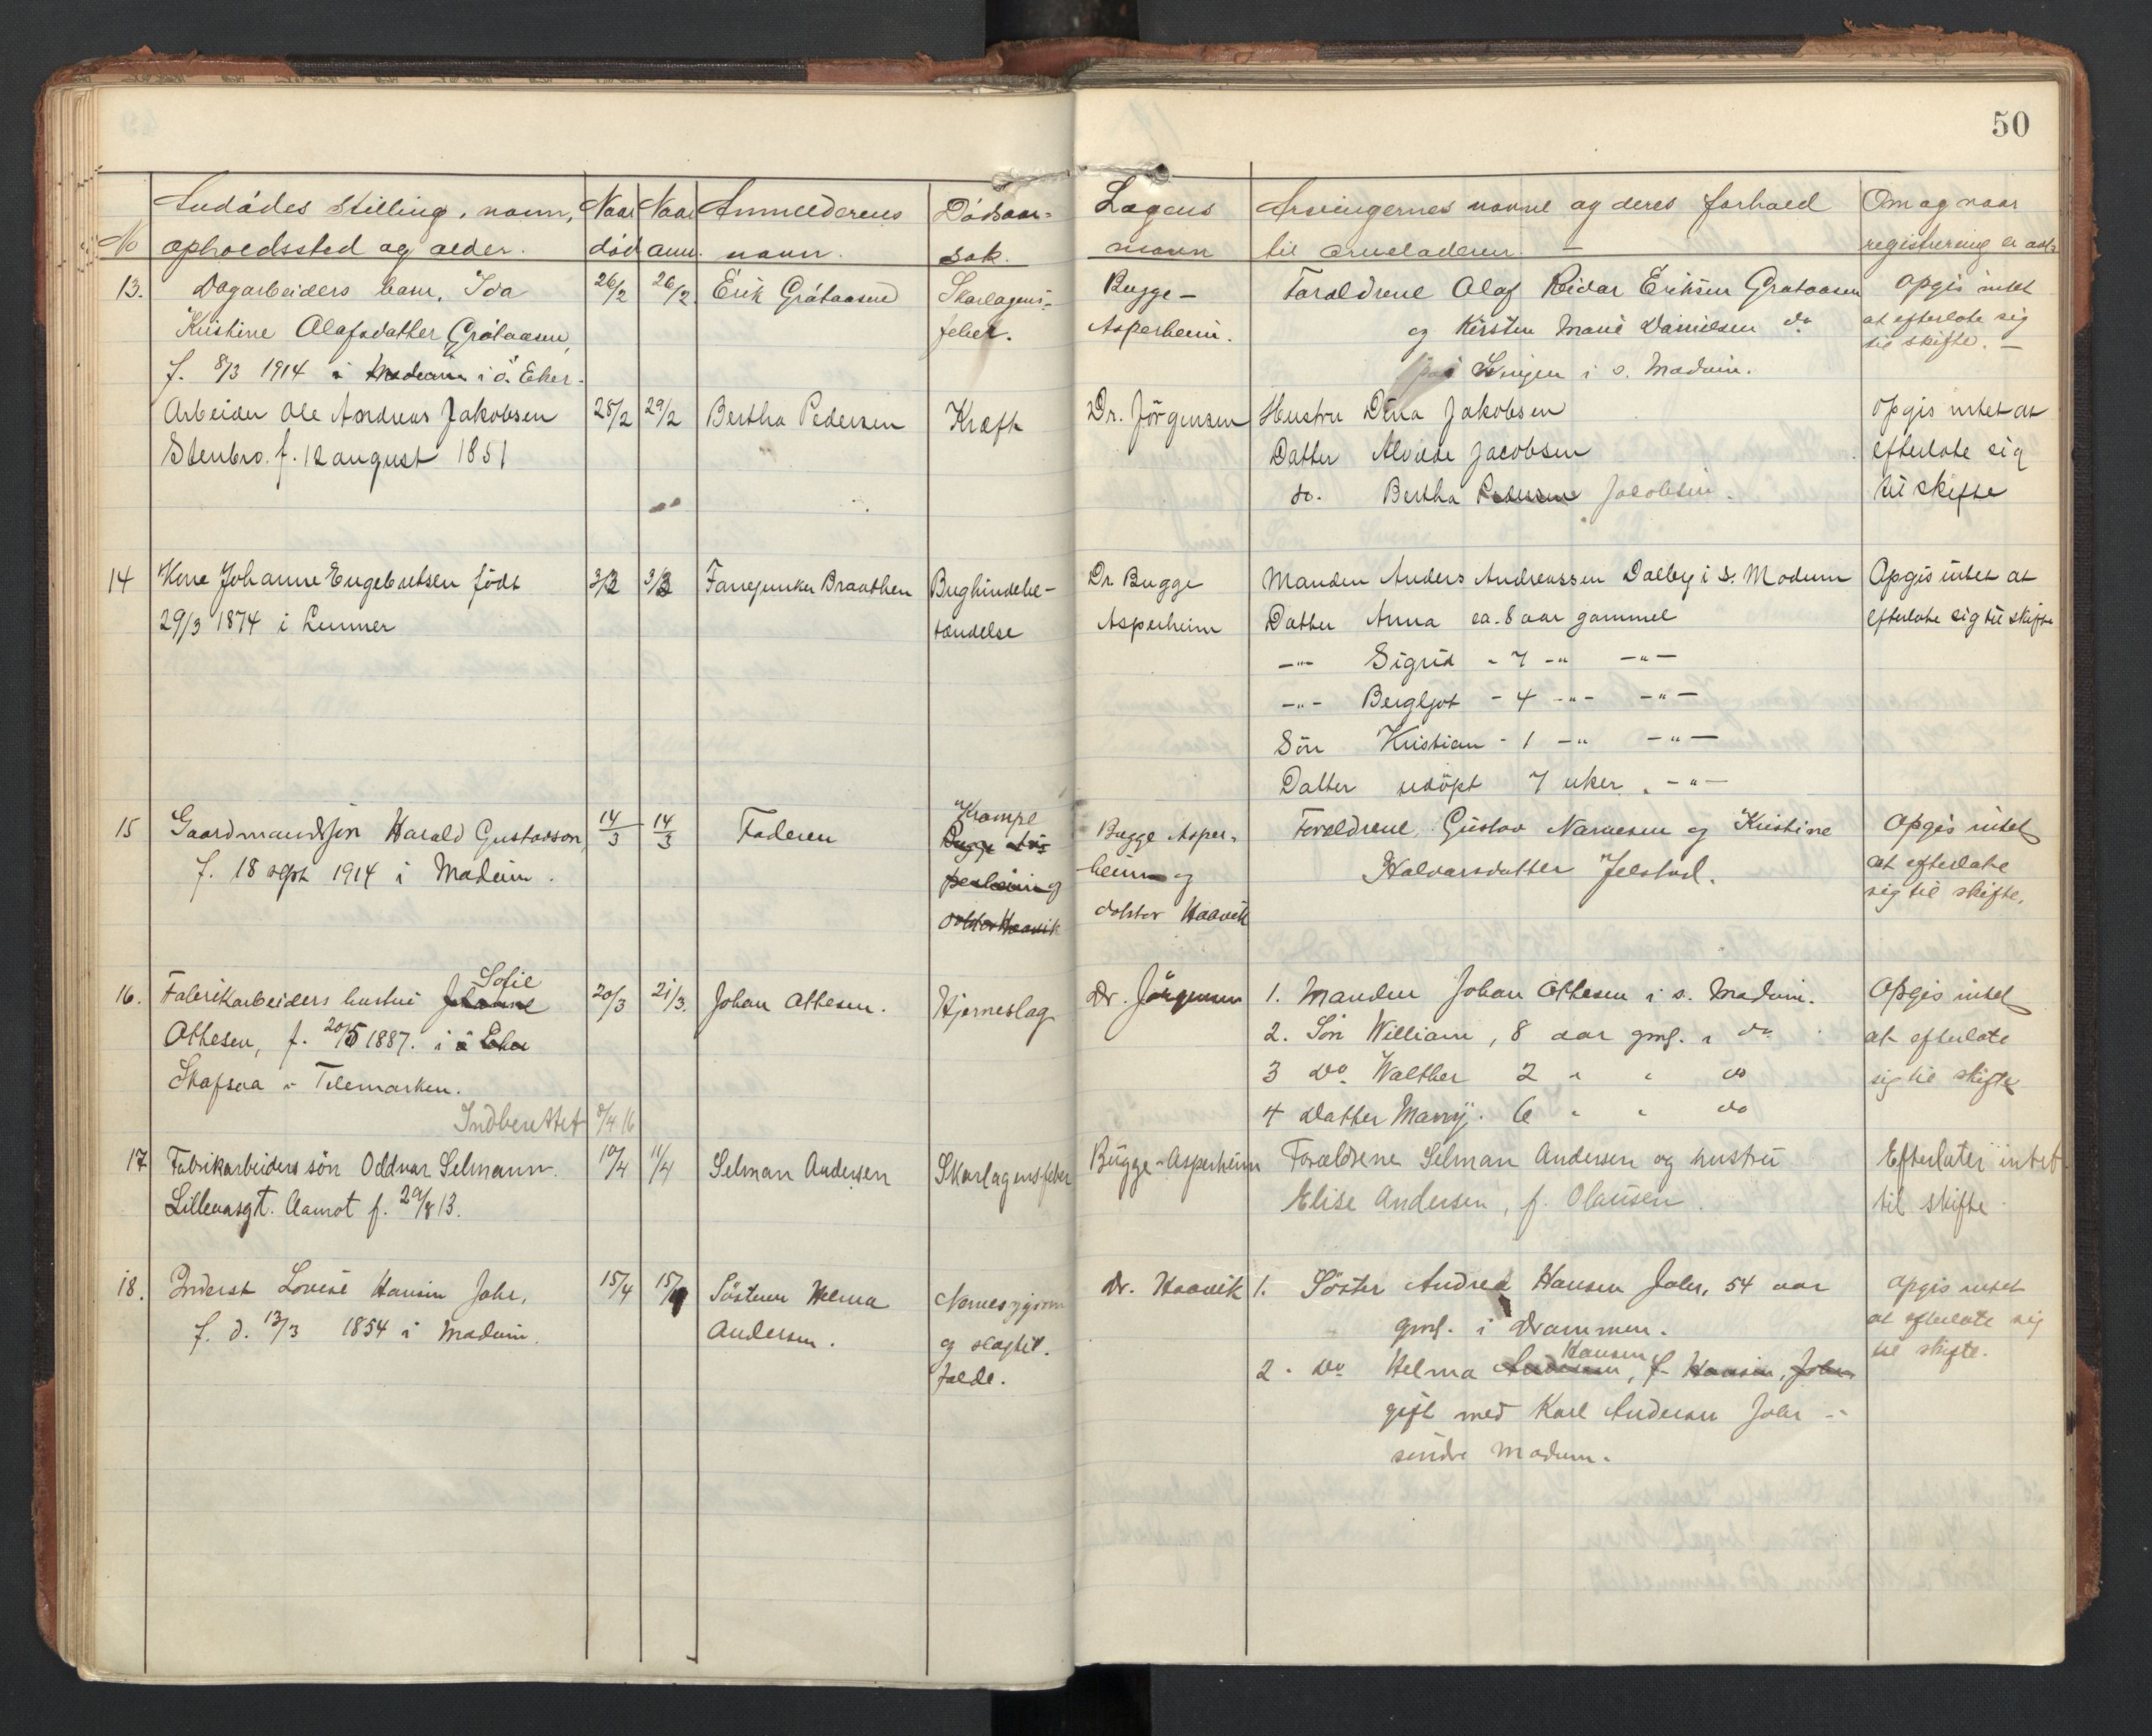 50
Avdödes stilling, navn,
Naar
Naar
Anmelderens
Dödsaar-
Lægens
Arvingernes navne og deres forhold
Om og naar
No
opholdssted og alder.
död
anm.
navn.
sak.
navn
til arveladeren. —
registrering er avh.
13.
Dagarbeiders barn, Ida
26/2
26/2
Erik Gråtaasen
Skarlagens-
Bugge-
Forældrene Olaf Reidar Eriksen Grataasen
Opgis intet
Kristine Olafsdatter Gråtaasen,
feber.
Asperheim.
og Kirsten Marie Danielsen do
at efterlate sig
f. 8/3 1914 i Modum i ö. Eker.
paa i s. Modum.
til skifte. —
Arbeider Ole Andreas Jakobsen
25/2
29/2
Bertha Pedersen
Kræft
Dr. Jörgensen
Hustru Dina Jakobsen
Opgis intet at
Stenbro. f. 12 august 1851
Datter Alvilde Jacobsen
efterlate sig
do. Bertha Pedersen Jacobsen.
til skifte
14
Kone Johanne Engebretsen födt
3/3
3/3
Braathen
Bughindebe-
Dr. Bugge
Manden Anders Andreassen Dalby i S. Modum
Opgis intet at
29/3 1874 i Lunner
tændelse
Asperheim
Datter Anna ca. 8 aar gammel
efterlate sig til skifte
-"- Sigrid - 7 -" -"-
-"- Bergljot - 4 -"- -"-
Sön Kristian - 1 -" -"-
Datter udöpt 7 uker. -"-
15
Gaardmandssön Harald Gustavson,
14/3
14/3
Faderen
Krampe
Bugge As-
Bugge Asper-
Forældrene Gustav Narvesen og Kristine
Opgis intet
f. 18 sept 1914 i Modum.
perheim og
heim og
Halvorsdatter Jelstad.
at efterlate
doktor Haavik
doktor Haavik
sig til skifte.
16.
Fabrikarbeiders hustru Johanne Sofie
20/3
21/3.
Johan Ottesen.
Hjerneslag
Dr. Jörgensen
1. Manden Johan Ottesen i s. Modum.
Opgis intet
Ottesen, f. 20/5 1887. i ö Eker
2. Sön William, 8 aar gml. i do
at efterlate
Skafsaa i Telemarken.
3 do Walther 2 " " do
sig til skifte
Indberettet 5/4 16
4 Datter Marry. 6 " " do
17
Fabrikarbeiders sön Oddvar Selmann.
10/4
11/4
Selman Andersen
Skarlagensfeber
Bugge-Asperheim
Forældrene Selman Andersen og hustru
Efterlater intet
Lilleaasgt. Aamot f. 29/8 13.
Elise Andersen, f. Olausen.
til skifte
18.
Inderst Lovise Hansen Jahr,
15/4
15/4
Söstren Helma
Nervesygdom
Dr. Haavik
1. Söster Andrea Hansen Jahr, 54 aar
Opgis intet
f. d. 13/3 1854 i Modum.
Andersen.
og slagtil.
gml. i Drammen.
at efterlate sig
fælde.
2. do Helma Andersen Hansen, f. Hansen, Jahr
til skifte.
gift med Karl Andersen Jahr i
söndre Modum.